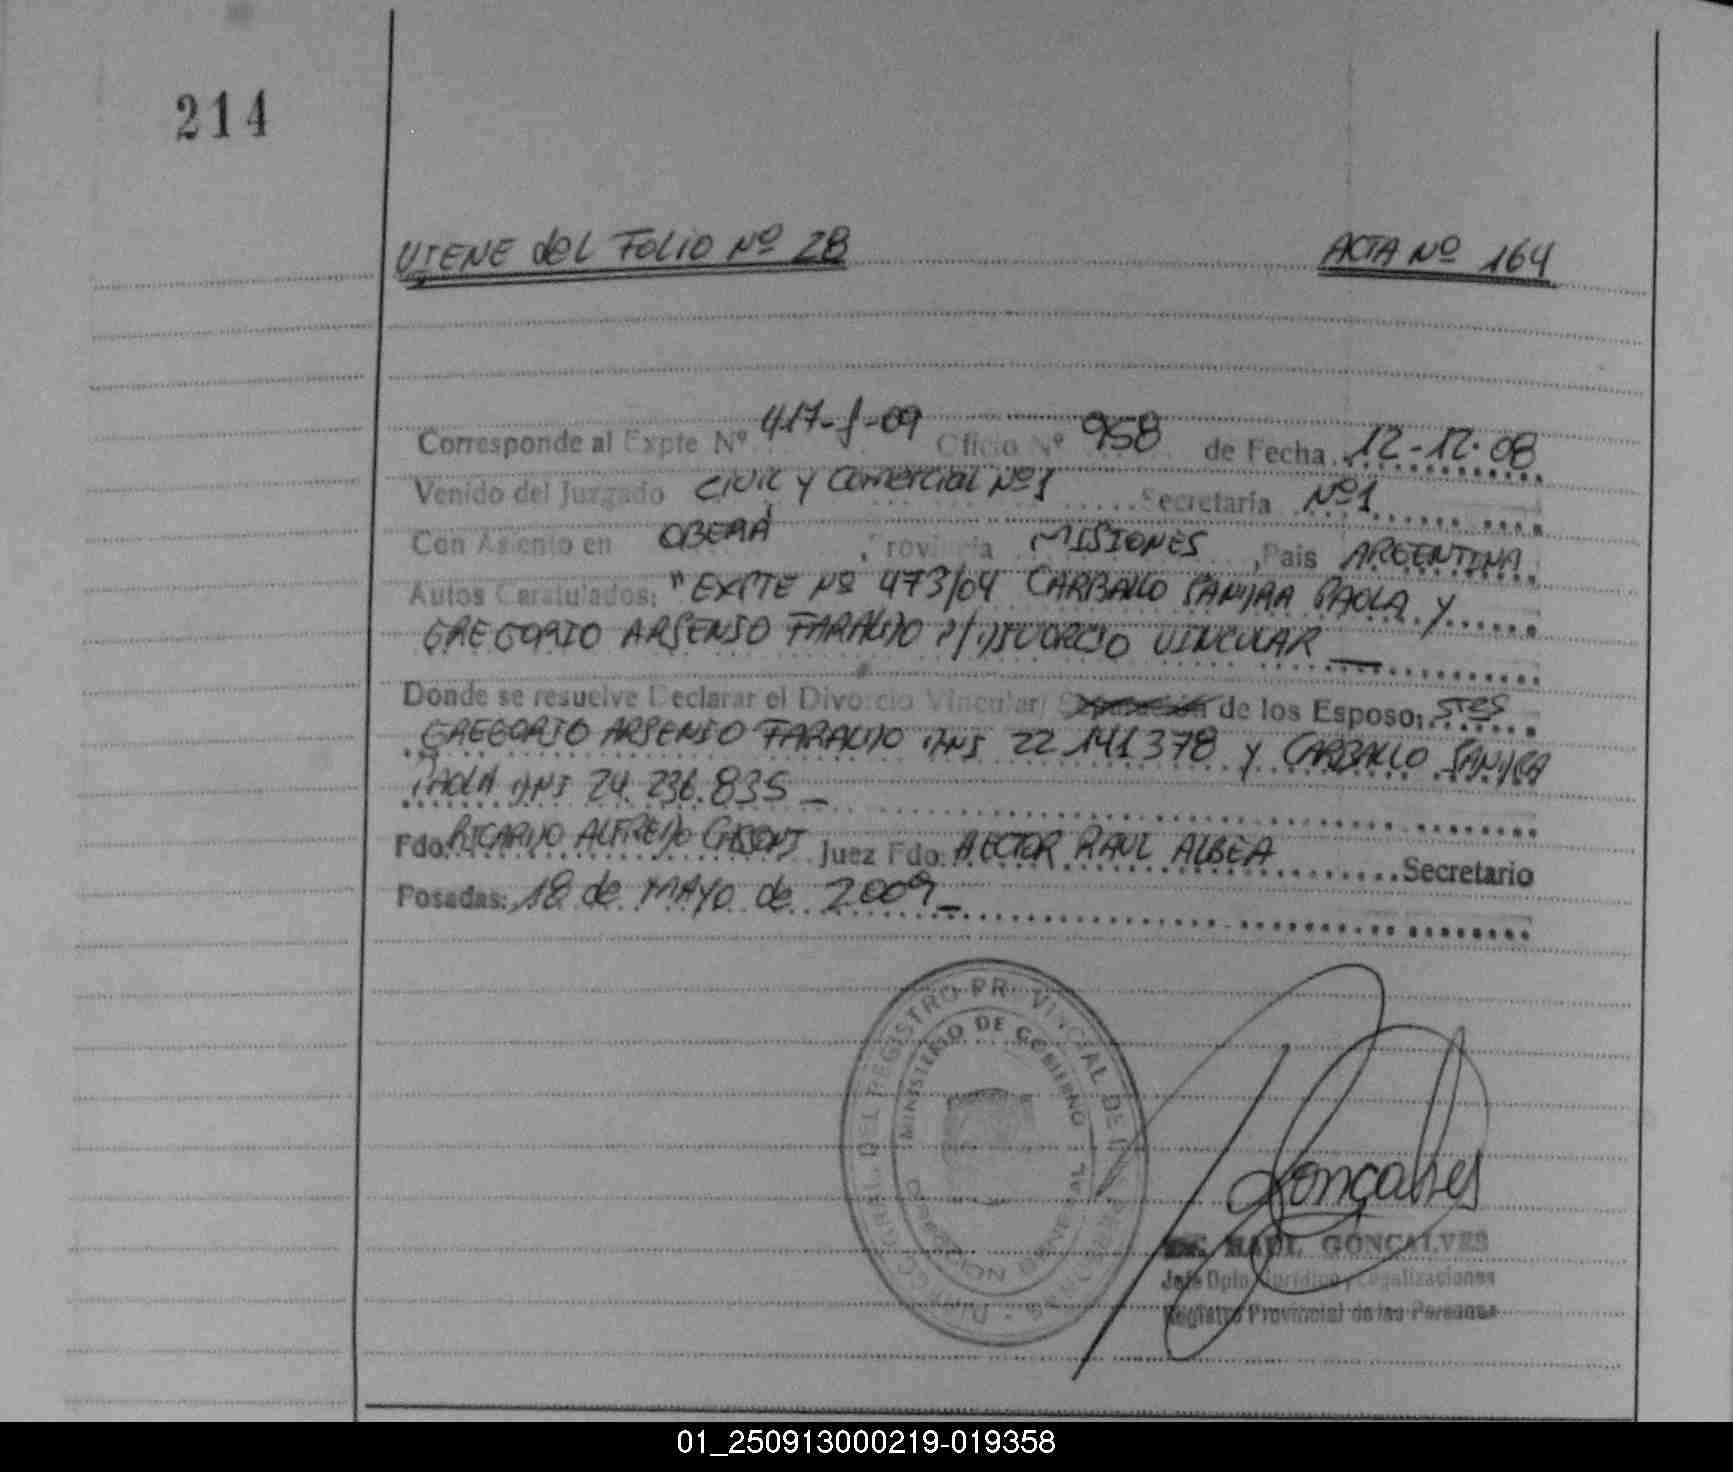 214
VIENE del FOLIO Nº 28
ACTA Nº 164
Corresponde al Expte Nº 417-J-09 Oficio Nº 958 de Fecha 12-12-08
Venido del Juzgado CIVIL y Comercial Nº1 Secretaría Nº1
Con Asiento en OBERÁ, Provincia MISIONES, País ARGENTINA
Autos Caratulados: "EXPTE Nº 473/04 CARBALLO SANDRA PAOLA y
GREGORIO ARSENIO FARALDO p/DIVORCIO VINCULAR
Donde se resuelve Declarar el Divorcio Vincular/ de los Esposo: sres
GREGORIO ARSENIO FARALDO DNI 22.141378 y CARBALLO SANDRA
PAOLA DNI 24.236.835_
Fdo. RICARDO ALFREDO Juez Fdo. HECTOR RAUL ALBEA Secretario
Posadas: 18 de MAYO de 2009_
DIREC. GRAL. DEL REGISTRO PROVINCIAL DE LAS PERSONAS
MINISTERIO DE GOBIERNO
Gonçalves
RAUL GONCALVES
Jefe Dpto. Jurídico y Legalizaciones
Registro Provincial de las Personas
01_250913000219-019358